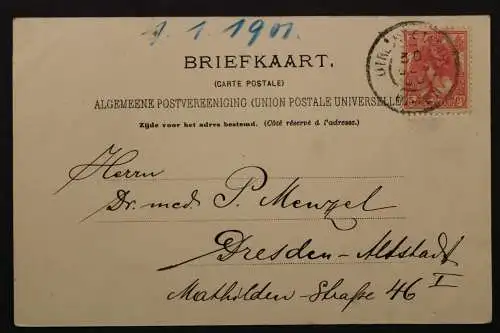 1.1.1901.
BRIEFKAART.
(CARTE POSTALE)
ALGEMEENE POSTVEREENIGING (UNION POSTALE UNIVERSELLE)
Zijde voor het adres bestemd. (Côté réservé à l'adresse.)
Herrn
Dr. med. P. Menzel
Dresden-Altstadt I
Mathilden-Straße 46